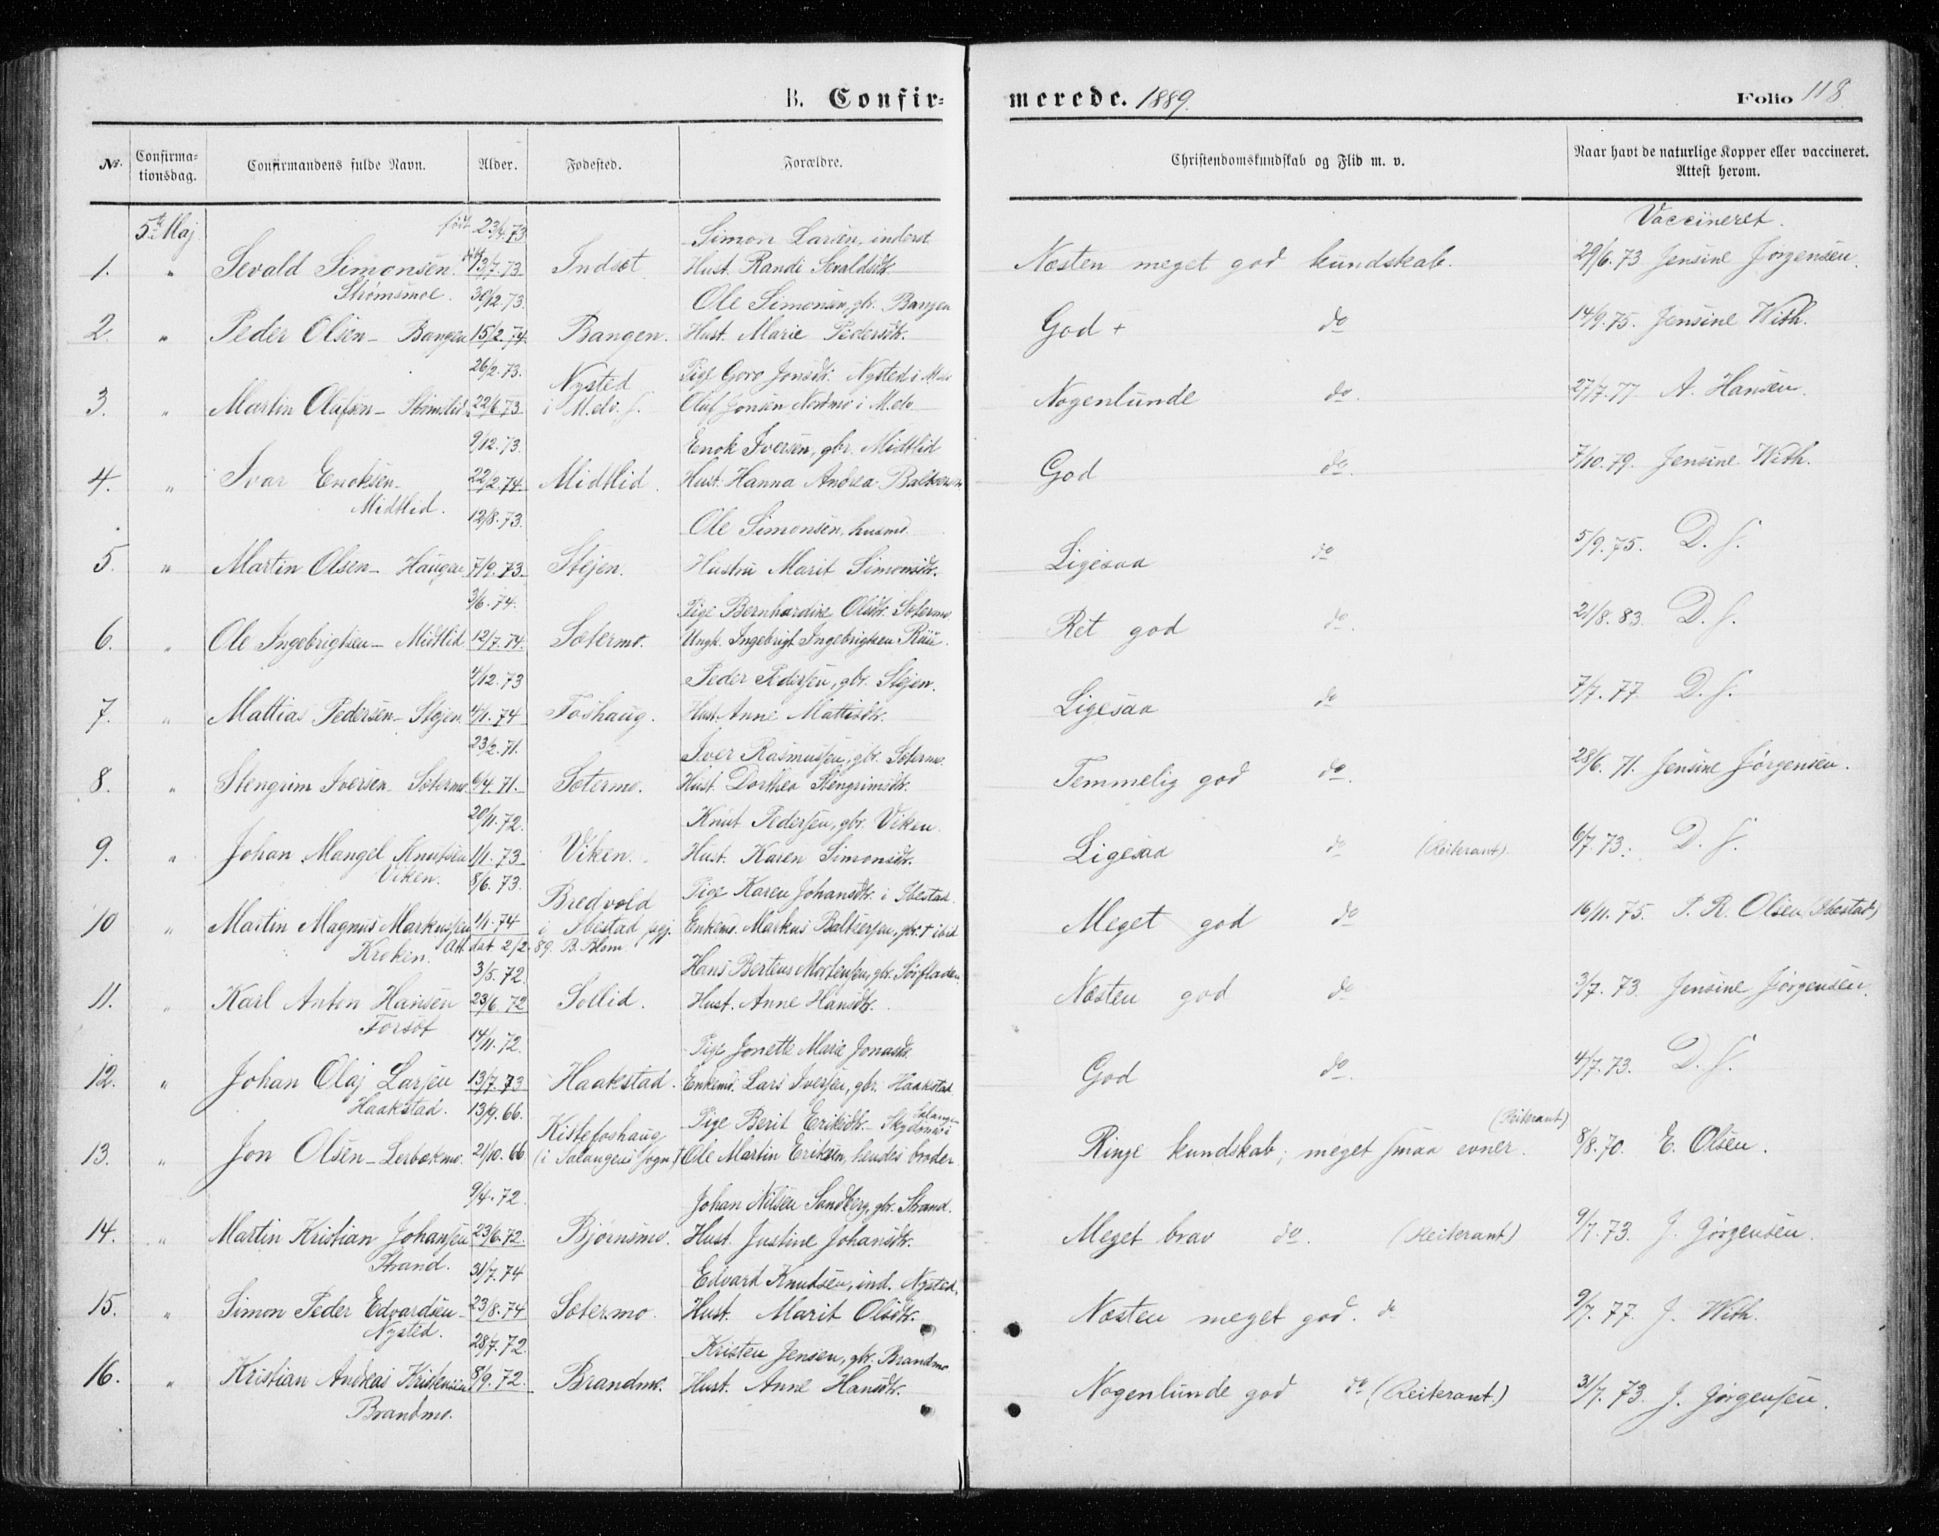 B. Confir-merede. 1889. Folio 118
Nr. Confirma-tionsdag. Confirmandens fulde Navn. Alder. Fødested. Forældre. Christendomskundskab og Flid m. v. Naar havt de naturlige Kopper eller vaccineret. Attest herom.
5te Maj født 23/4.73 Simon Larsen, inderst Vaccineret.
1. " Sevald Simonsen 13/7.73 Indsøt Hust. Randi Sevaldsdtr. Næsten meget god kundskab. 29/6.73 Jensine Jørgensen.
Strømsmoe. 30/12.73. Ole Simonsen, gbr. Bangen
2. " Peder Olsen - Bangen 15/2.74. Bangen. Hust. Marie Pedersdtr. God + do 14/9.75. Jensine With.
26/2.73. Nysted Pige Goro Jonsdtr. Nysted i
3. " Martin Olufsen - 22/6.73 i Oluf Jonsen Nordmo i Nogenlunde do. 27/7.77 A. Hansen.
9/12.73. Enok Iversen, gbr. Midtlid
4. " Ivar Enoksen 22/2.74. Midtlid. Hust. Hanna Andrea God do. 7/10.79. Jensine With.
Midtlid. 12/8.73. Ole Simonsen, husmd.
5. " Martin Olsen - Haugen 7/9.73. Stejen. Hustru Marit Simonsdtr. Ligesaa do 5/9.75. D. S.
3/6.74. Pige Bernhardine Olsdtr. Sætermo
6. " Ole Ingebrigtsen - Midtlid 12/7.74. Sætermo. Ungk. Ingebrigt Ingebrigtsen Ret god do. 21/8.83. D. S.
4/12.73 Peder Pedersen, gbr. Stejen.
7. " Mattias Pedersen - Stejen 4/1.74 Foshaug. Hust. Anne Mattisdtr. Ligesaa do 7/7.77 D. S.
23/2.71. Iver Rasmussen, gbr. Sætermo.
8. " Stengrim Iversen Sætermo. 6/4.71. Sætermo. Hust. Dorthea Stengrimsdtr. Temmelig god do. 28/6.71. Jensine Jørgensen.
20/11.72. Knut Pedersen, gbr. Viken.
9. " Johan Mangel Knutsen 1/1.73 Viken. Hust. Karen Simonsdtr. Ligesaa do (Reiterant). 6/7.73. D. S.
Viken. 8/6.73. Bredvold Pige Karen Johansdtr. i Ibestad.
10 " Martin Magnus Markussen 1/1.74 i Ibestad pgj. Enkemd. Markus Baltsersen, gbr. ibid Meget god do 16/11.75. P. R. Olsen (Ibestad)
Kroken. Att. dat 2/2.89. B. Blom 3/5.72. Hans Berteus Mortensen, gbr. Sørfladen.
11. " Karl Anton Hansen 23/6.72 Sollid. Hust. Anne Hansdtr. Næsten god do 3/7.73. Jensine Jørgensen.
Forsøt 14/11.72. Pige Jonette Marie Jonasdtr.
12. " Johan Olaj Larsen 13/7.73 Haakstad. Enkemd. Lars Iversen, gbr. Haakstad God do. 4/7.73. D. S.
Haakstad. 13/9.66. Kistefoshaug Pige Berit Eriksdtr. Salangen (Reiterant)
13. " Jon Olsen - Lerbækmo. 21/10.66 (i Salangens sogn) Ole Martin Eriksen, hendes broder. Ringe kundskab; meget smaa evner. 8/8.70. E. Olsen.
9/4.72 Johan Nilsen Sandberg, gbr. Strand.
14. " Martin Kristian Johansen 23/6.72. Bjørnsmo. Hust. Justine Johansdtr. Meget brav do. (Reiterant) 9/7.73. J. Jørgensen.
Strand. 31/7.74 Edvard Knudsen, ind. Nysted.
15. " Simon Peder Edvardsen 23/8.74 Sætermo. Hust. Marit Olsdtr. Næsten meget god. do 9/7.77 J. With.
Nysted. 28/7.72. Kristen Jensen, gbr. Brandmo
16. " Kristian Andreas Kristensen 8/9.72. Brandmo. Hust. Anne Hansdtr. Nogenlunde god do (Reiterant.) 31/7.73. J. Jørgensen.
Brandmo.